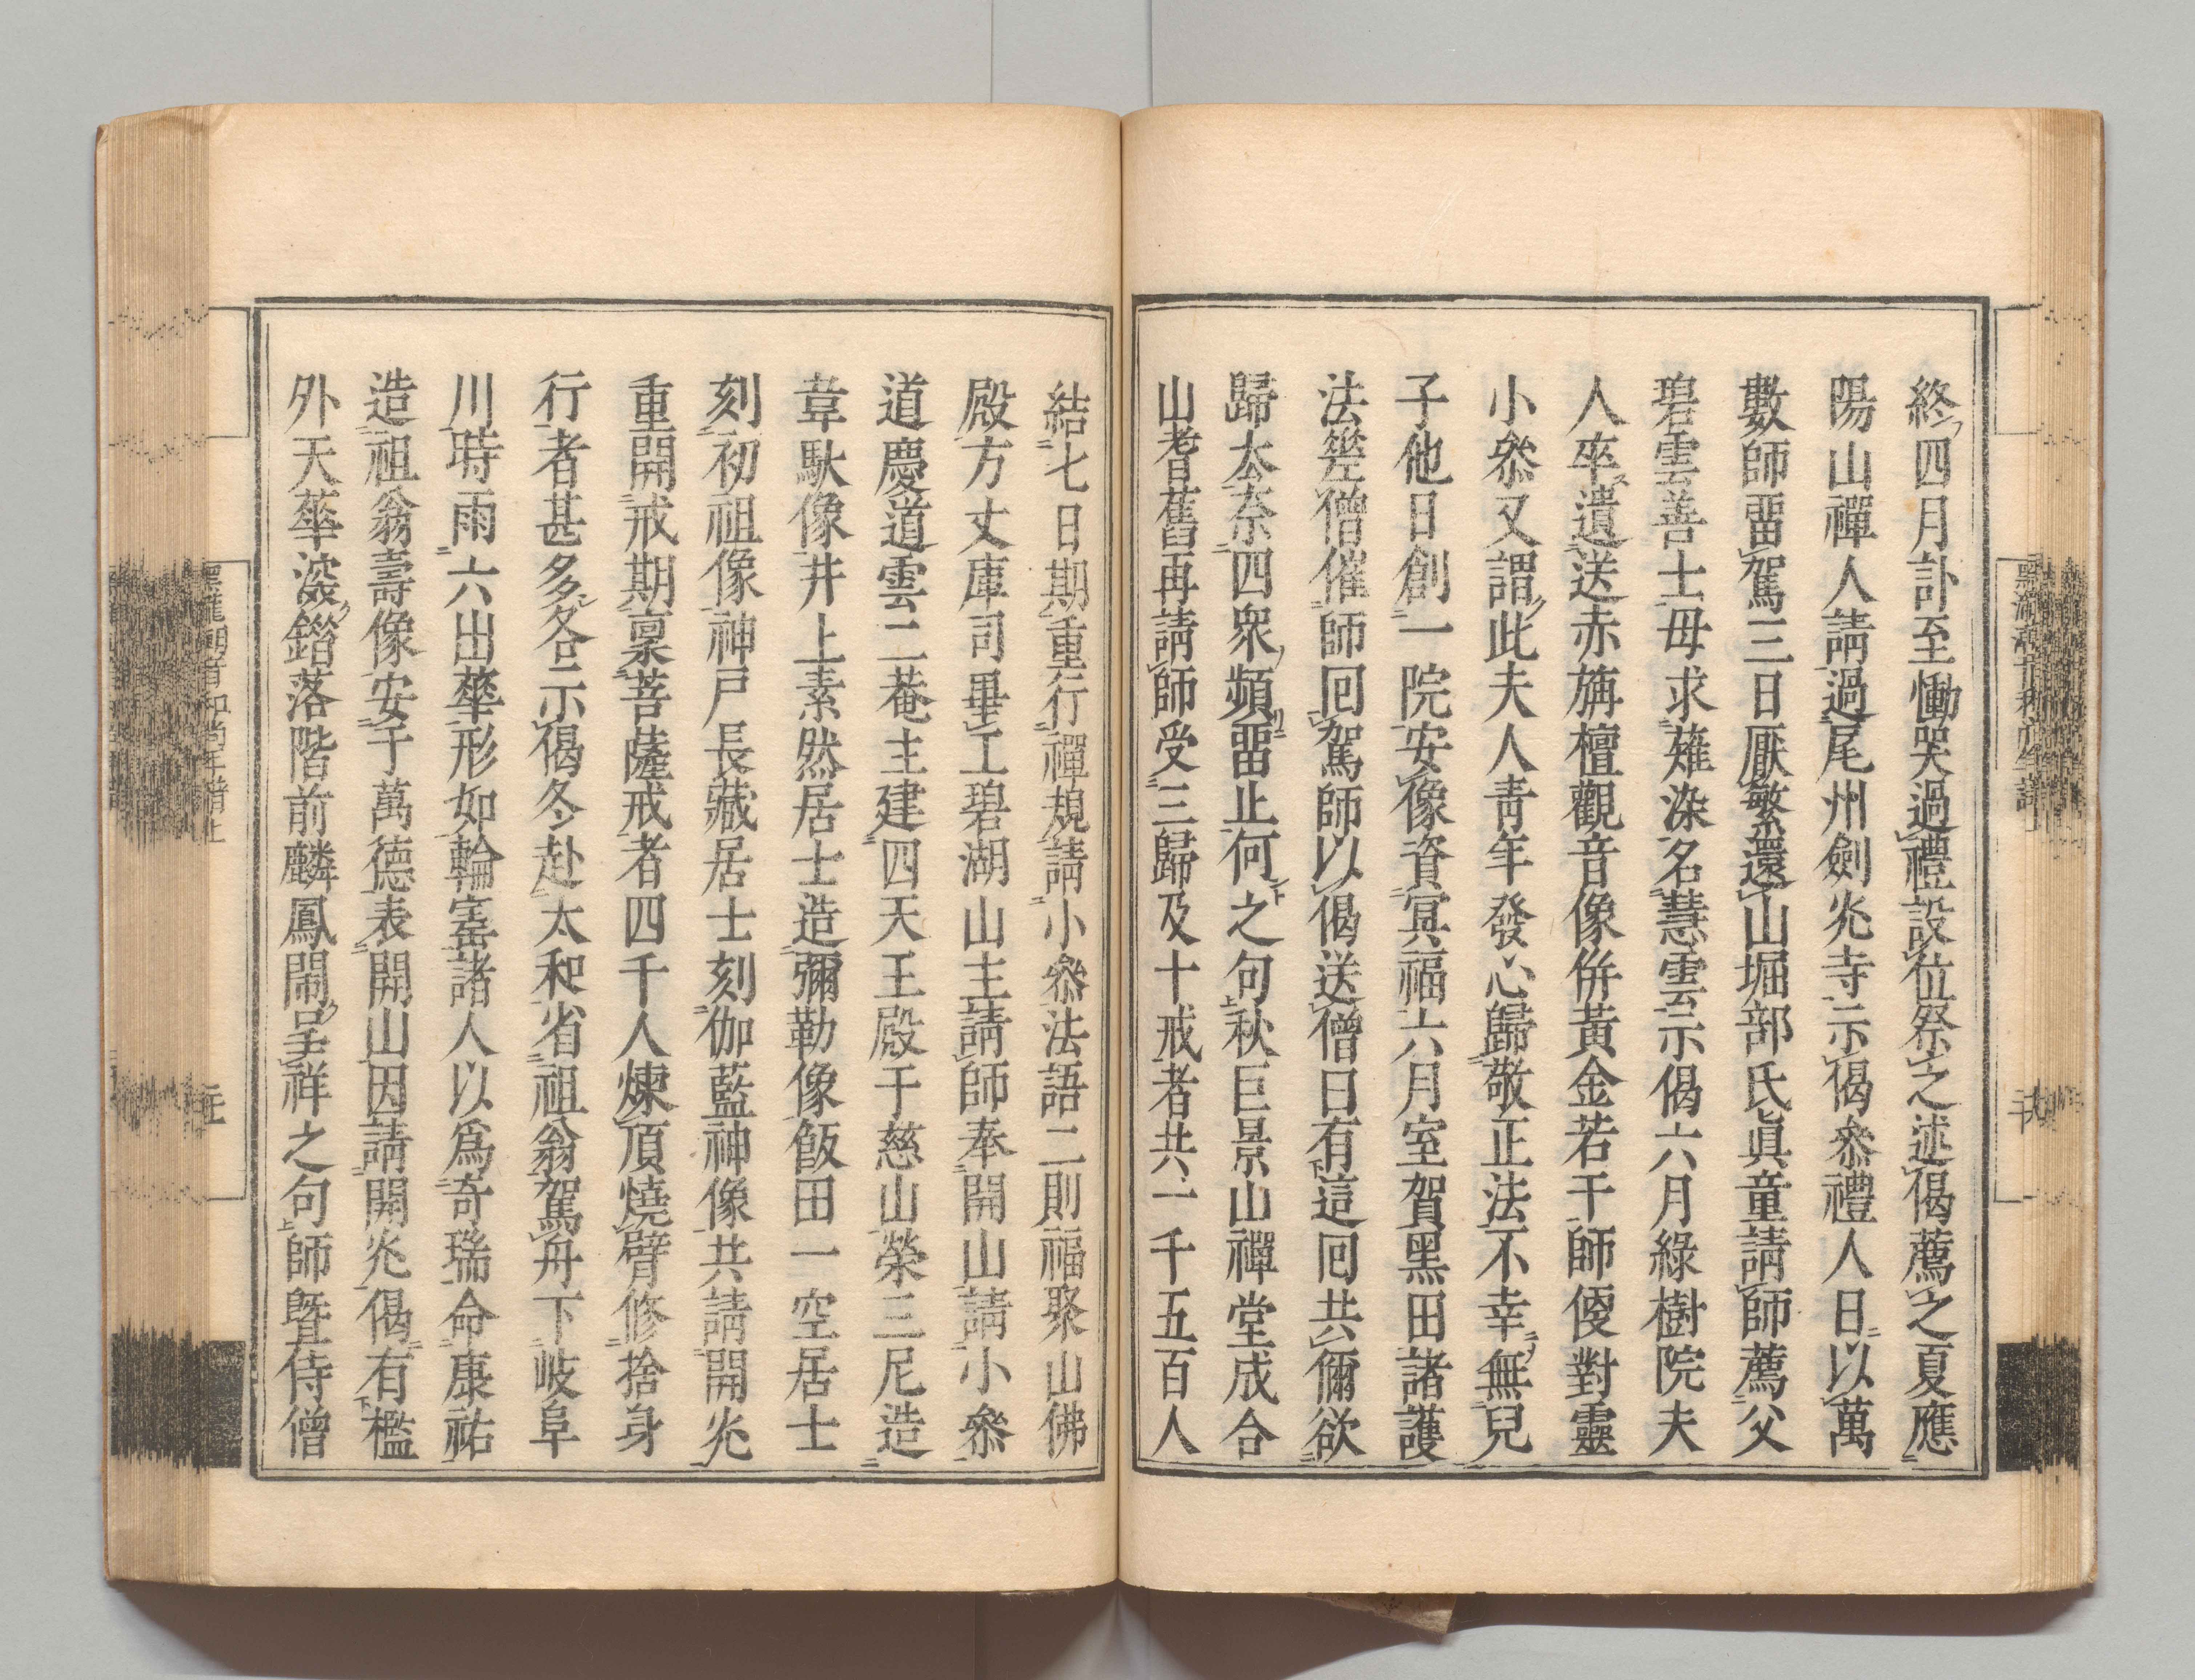 終四月訃至慟哭過禮設位祭之述偈薦之夏應
陽山禪人請過尾州劍光寺示偈叅禮人日以萬
數師畱駕三日厭繁還山堀部氏眞童請師薦父
碧雲善士母求薙染名慧雲示偈六月綠樹院夫
人卒遺送赤旃檀觀音像併黃金若干師優對靈
小叅又謂此夫人青年發心歸敬正法不幸無兒
子他日創一院安像資冥福六月室賀黑田諸護
法差僧催師回駕師以偈送僧曰有這回共彌欲
歸太奈四衆頻畱止何之句秋巨景山禪堂成合
山耆舊再請師受三歸及十戒者共一千五百人
結七日期重行禪規請小叅法語二則福聚山佛
殿方丈庫司畢工碧湖山主請師奉開山請小叅
道慶道雲二菴主建四天王殿于慈山榮三尼造
韋馱像井上素然居士造彌勒像飯田一空居士
刻初祖像神戸長藏居士刻伽藍神像共請開光
重開戒期稟菩薩戒者四千人煉頂燒臂修捨身
行者甚多各示偈冬赴太和省祖翁駕舟下岐阜
川時雨六出華形如輪室諸人以爲奇瑞命康祐
造祖翁壽像安于萬德表開山因請開光偈有檻
外天華滾鎦落階前麟鳳閙呈祥之句師曁侍僧